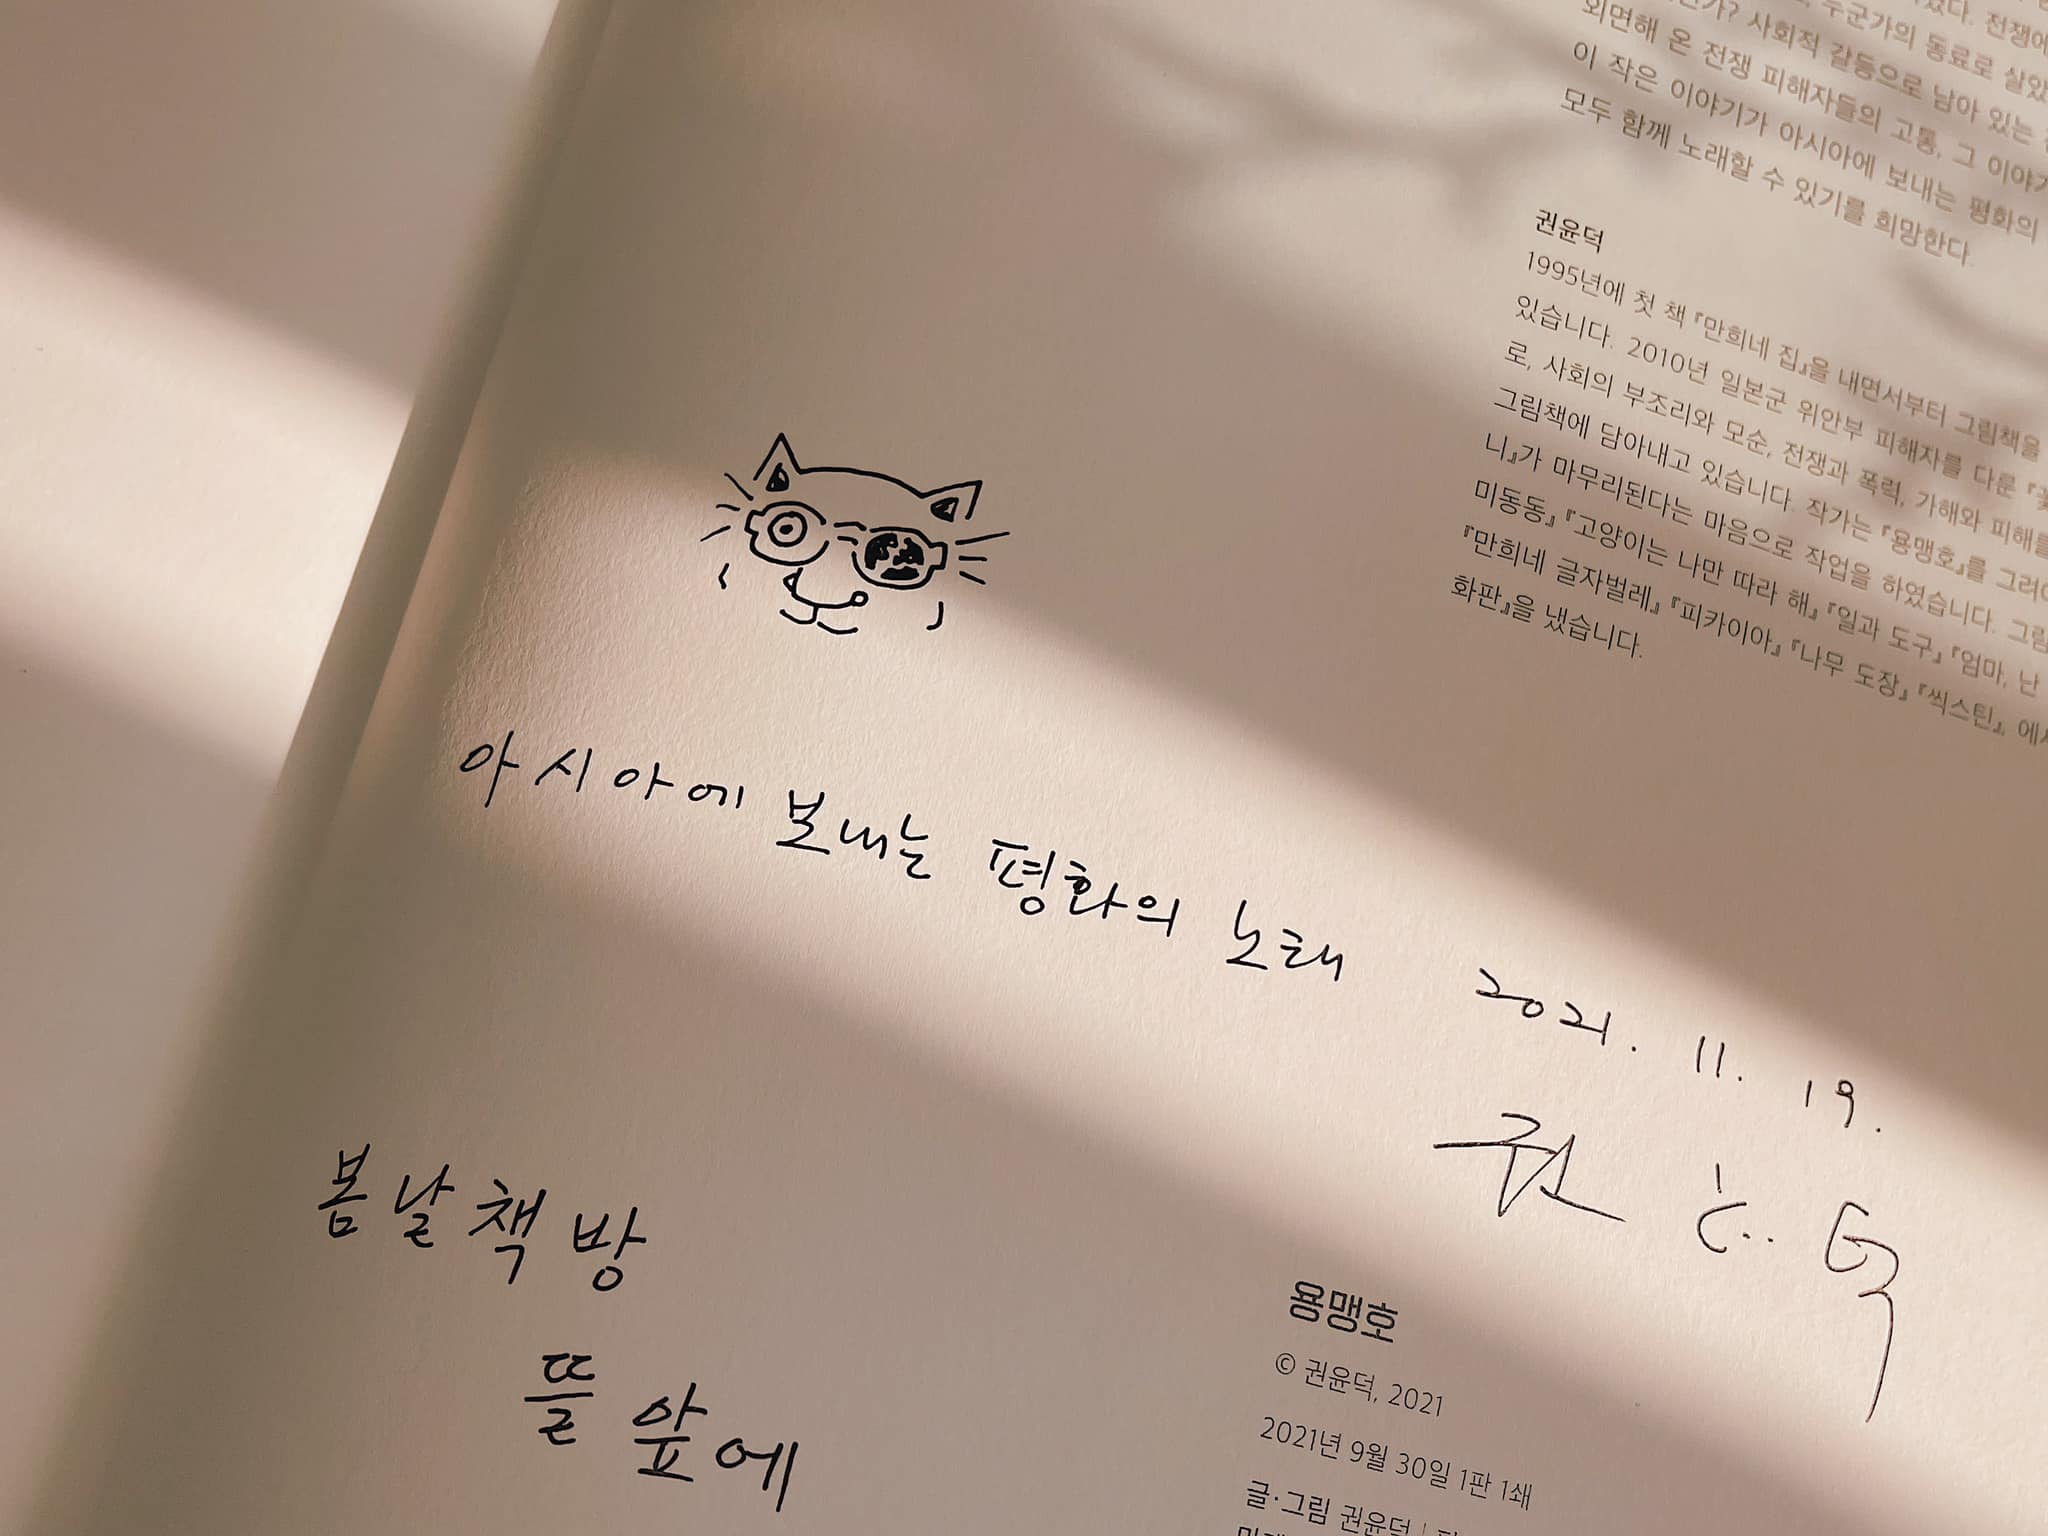 외면해 온 전쟁 피해자들의 고통, 그 이야기
이 작은 이야기가 아시아에 보내는 평화의
모두 함께 노래할 수 있기를 희망한다.
권윤덕
1995년에 첫 책 『만희네 집』을 내면서부터 그림책을
있습니다. 2010년 일본군 위안부 피해자를 다룬 『꽃
로, 사회의 부조리와 모순, 전쟁과 폭력, 가해와 피해를
그림책에 담아내고 있습니다. 작가는 『용맹호』를 그려
니』가 마무리된다는 마음으로 작업을 하였습니다. 그림
미동동』 『고양이는 나만 따라 해』 『일과 도구』 『엄마, 난
『만희네 글자벌레』 『피카이아』 『나무 도장』 『씩스틴』, 에
화판』을 냈습니다.
아시아에 보내는 평화의 노래 2021. 11. 19.
권윤덕
봄날책방
뜰앞에
용맹호
© 권윤덕, 2021
2021년 9월 30일 1판 1쇄
글·그림 권윤덕